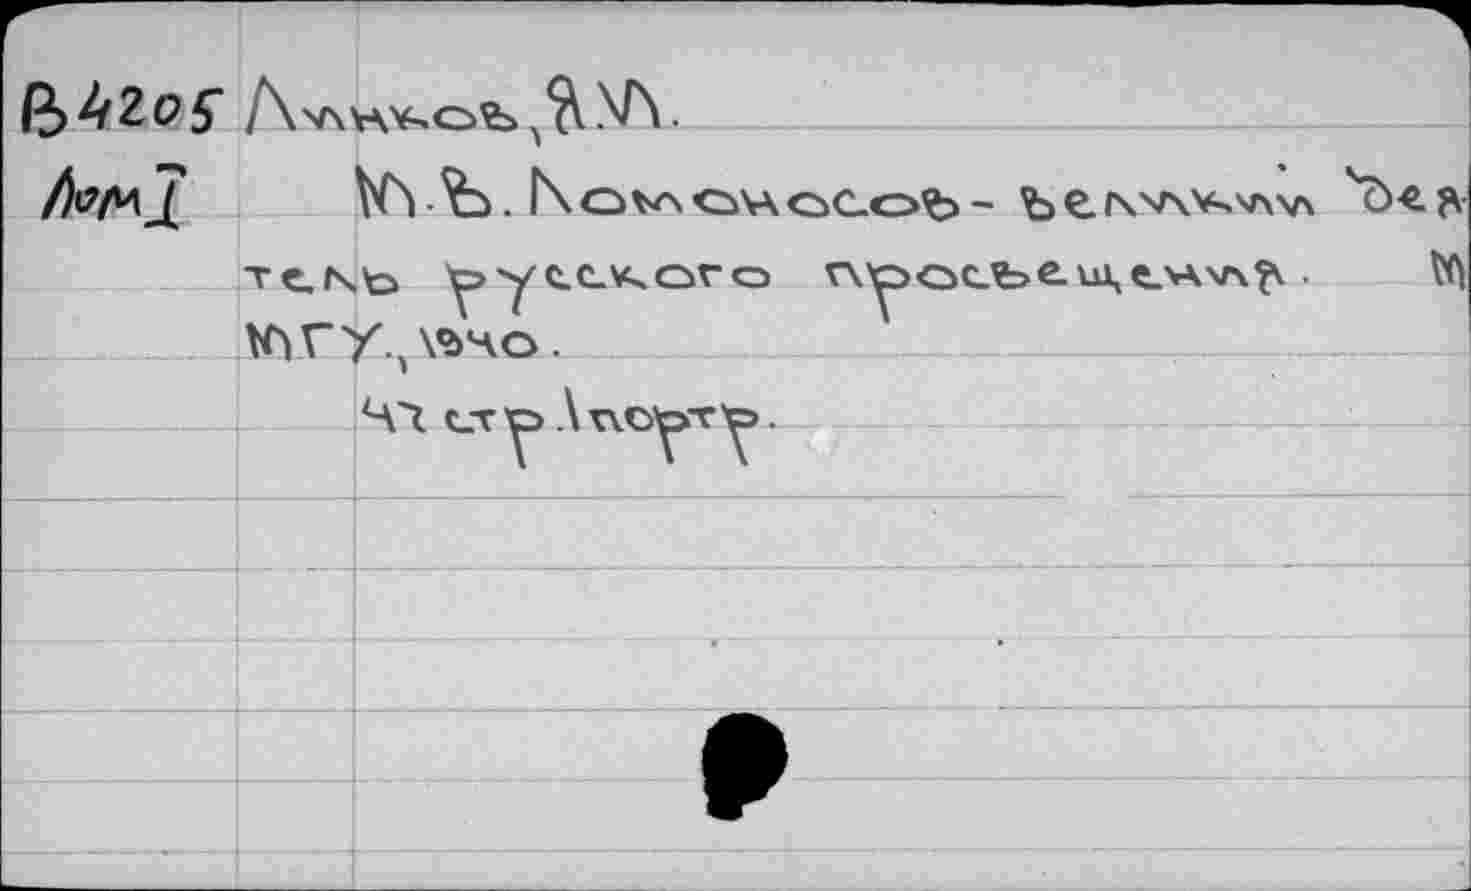 В4205 Линков, Я.И.
Лом1 М.В. Ломоносов - великий дея
тель русского просвещения. М
МГУ., 1940.
47 стр. 1 портр.